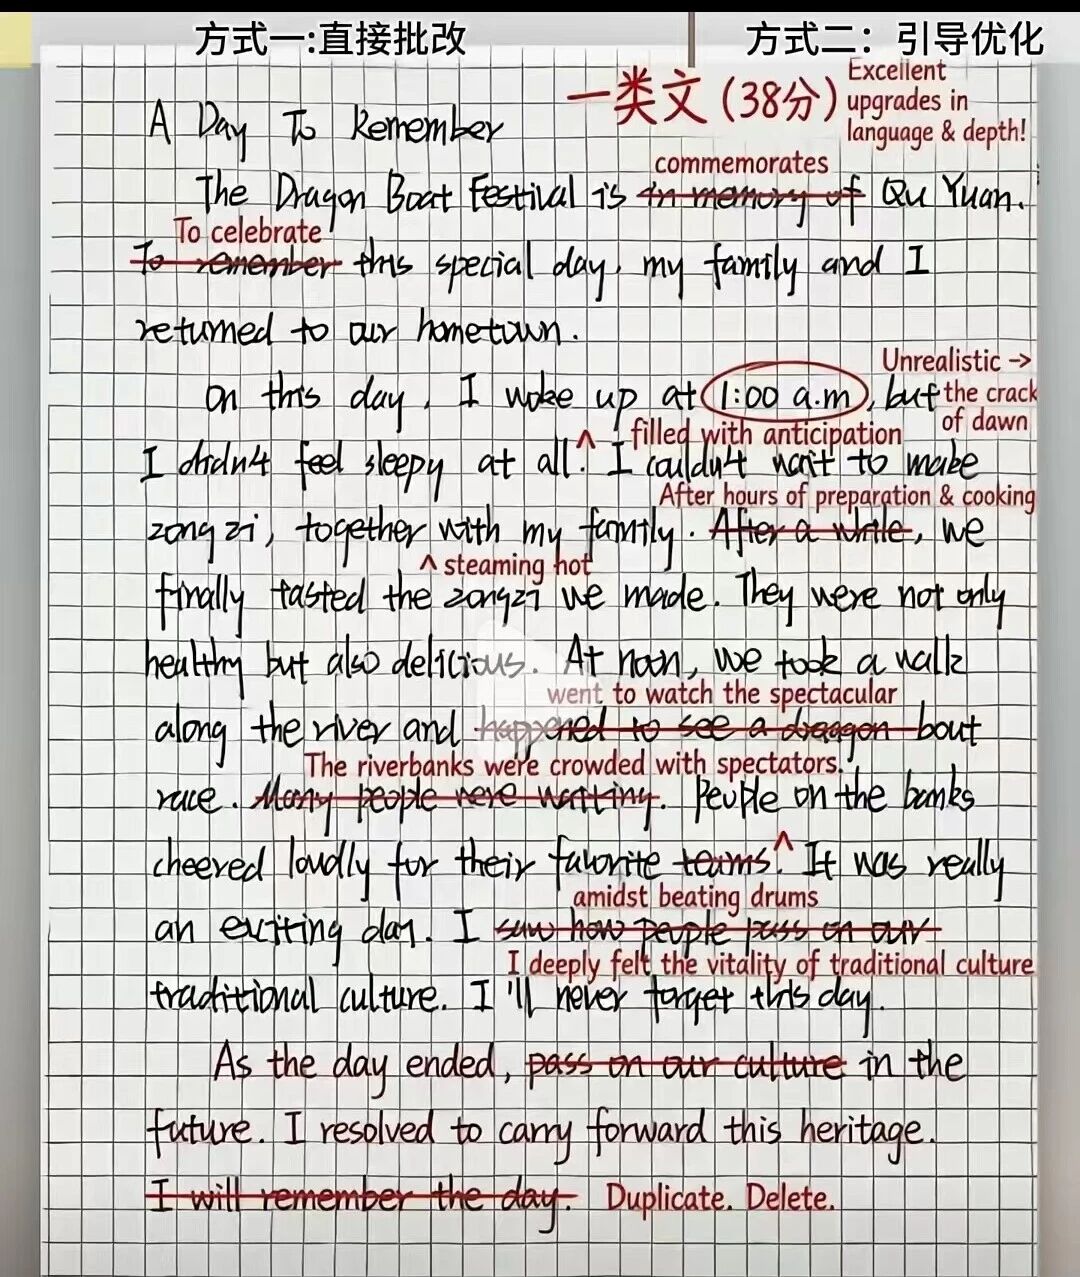 方式一:直接批改
方式二：引导优化
一类文(38分)
Excellent
upgrades in
language & depth!
A Day To Remember
commemorates
The Dragon Boat Festival is in memory of Qu Yuan.
To celebrate
To remember this special day, my family and I
returned to our hometown.
Unrealistic →
On this day, I woke up at 1:00 a.m, but
the crack
of dawn
^ filled with anticipation
I didn't feel sleepy at all. I couldn't wait to make
After hours of preparation & cooking
zongzi, together with my family. After a while, we
^ steaming hot
finally tasted the zongzi we made. They were not only
healthy but also delicious. At noon, we took a walk
went to watch the spectacular
along the river and happened to see a draagon bout
The riverbanks were crowded with spectators.
race. Many people were waiting. People on the banks
cheered loudly for their favorite teams.^ It was really
amidst beating drums
an exciting day. I saw how people pass on our
I deeply felt the vitality of traditional culture
traditional culture. I'll never forget this day.
As the day ended, pass on our culture in the
future. I resolved to carry forward this heritage.
I will remember the day. Duplicate. Delete.